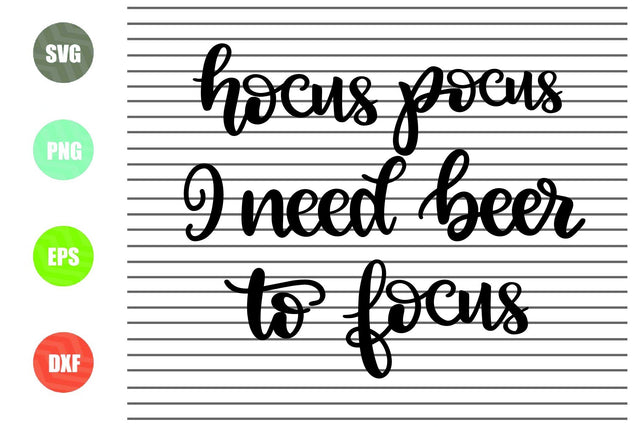 SVG
PNG
EPS
DXF
hocus pocus
I need beer
to focus